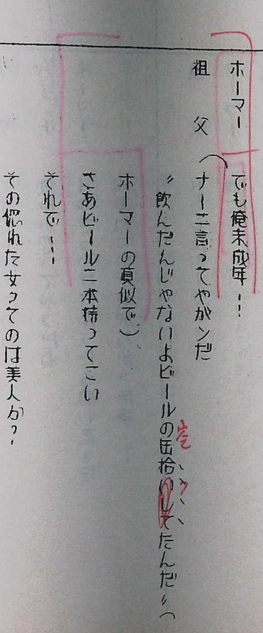 ホーマー　でも俺未成年…
祖　父（ナーニ言ってやがンだ
〝飲んだんじゃないよビールの空缶拾いしてたんだ〟って
ホーマーの真似で）
さあビール二本持ってこい
それで…
その惚れた女ってのは美人か？